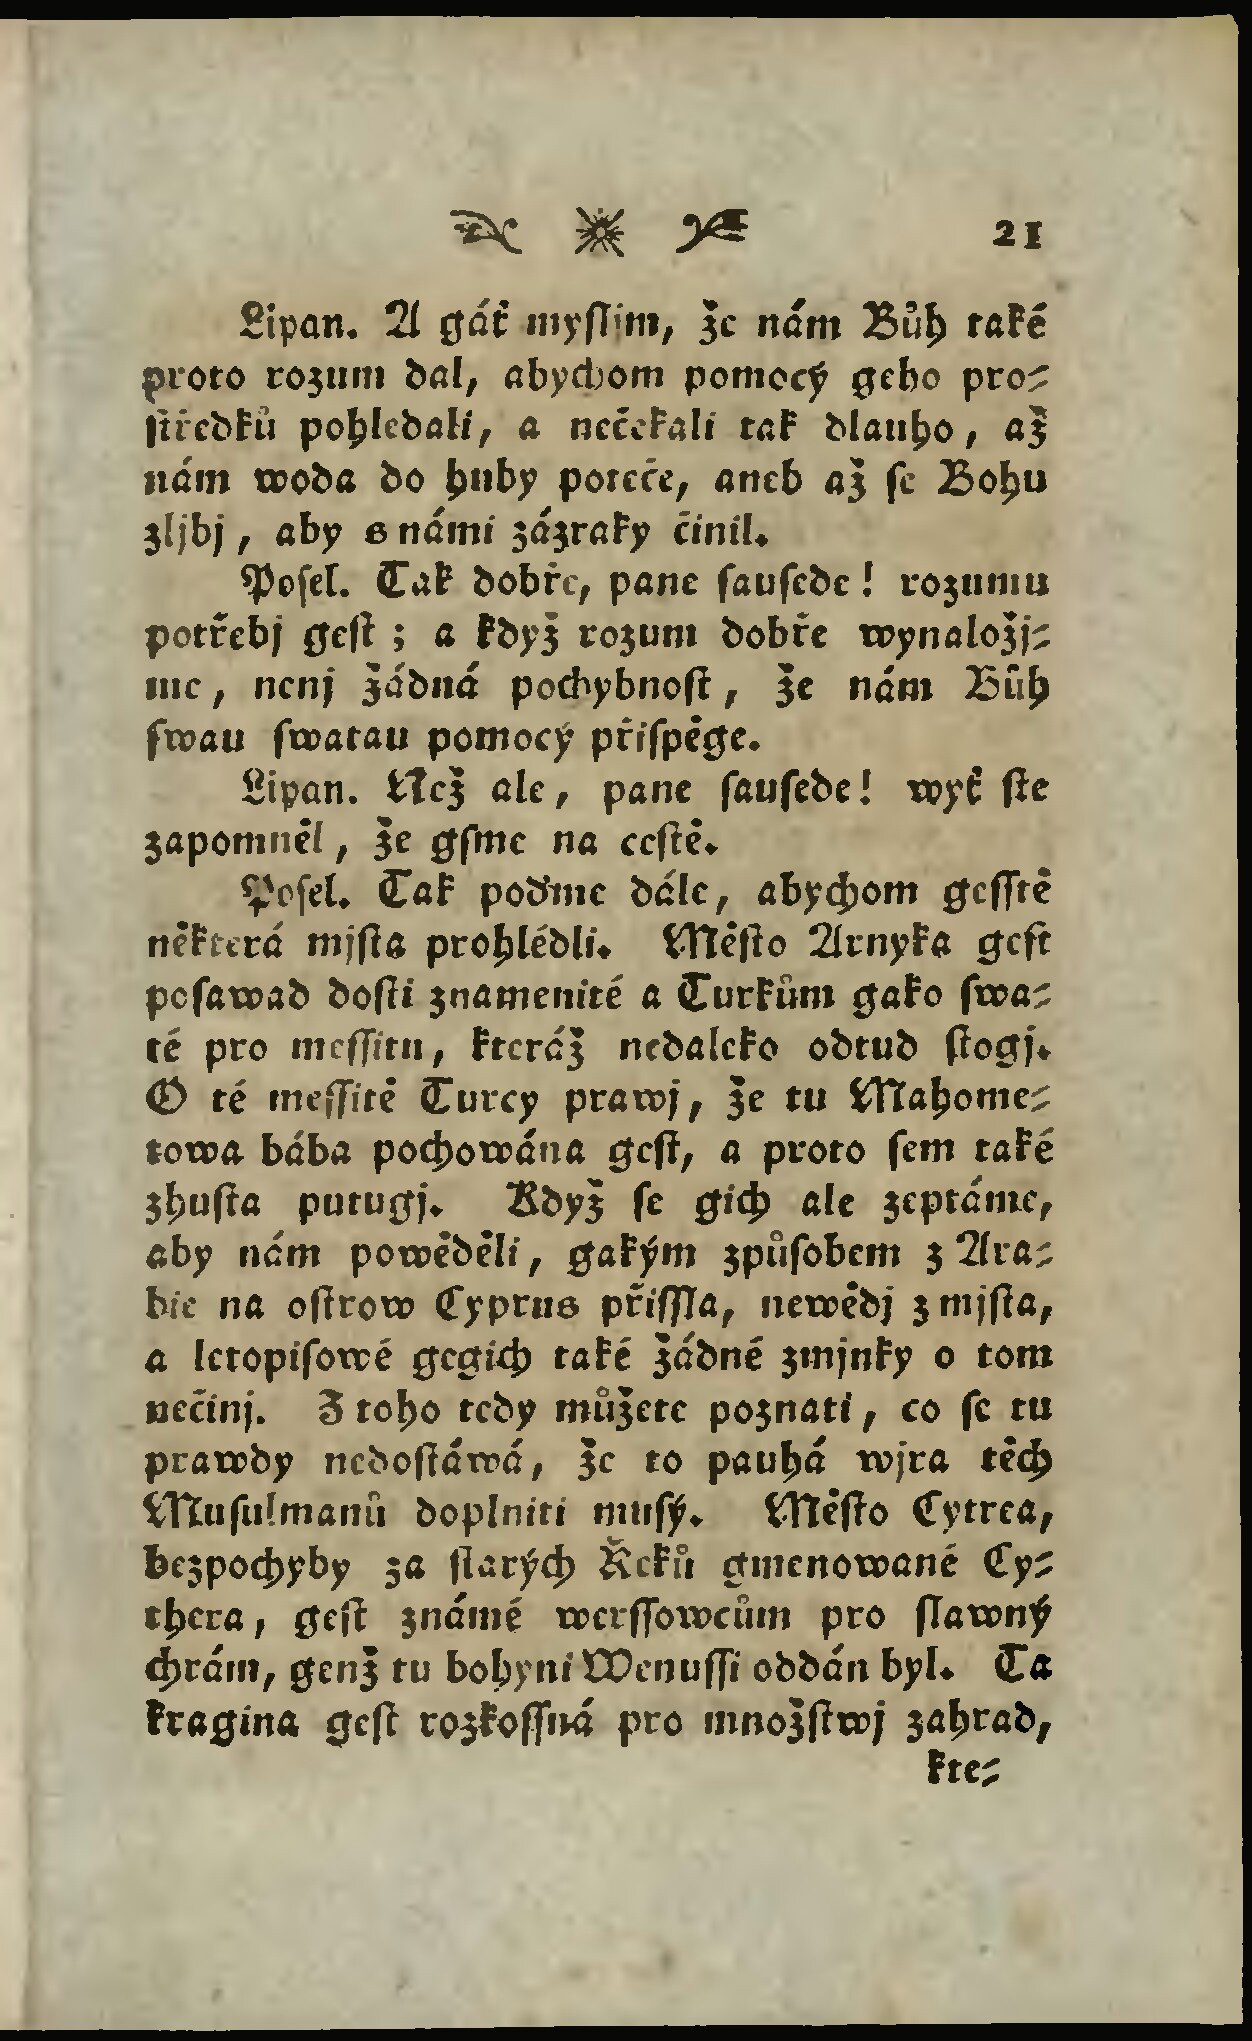 21
Lipan. A gáť myſlim, že nám Bůh také
proto rozum dal, abychom pomocý geho pro-
ſtředků pohledali, a nečekali tak dlauho, až
nám woda do huby poteče, aneb až ſe Bohu
zljbj, aby s námi zázraky činil.
Poſel. Tak dobře, pane ſauſede! rozumu
potřebj geſt; a když rozum dobře wynaložj-
me, nenj žádná pochybnoſt, že nám Bůh
ſwau ſwatau pomocý přiſpěge.
Lipan. Než ale, pane ſauſede! wyť ſte
zapomněl, že gſme na ceſtě.
Poſel. Tak poďme dále, abychom geſſtě
některá mjſta prohlédli. Měſto Arnyka geſt
poſawad doſti znamenité a Turkům gako ſwa-
té pro meſſitu, kteráž nedaleko odtud ſtogj.
O té meſſitě Turcy prawj, že tu Mahome-
towa bába pochowána geſt, a proto ſem také
zhuſta putugj. Když ſe gich ale zeptáme,
aby nám powěděli, gakým způſobem z Ara-
bie na oſtrow Cyprus přiſſla, newědj z mjſta,
a letopiſowé gegich také žádné zmjnky o tom
nečinj. Z toho tedy můžete poznati, co ſe tu
prawdy nedoſtáwá, že to pauhá wjra těch
Muſulmanů doplniti muſý. Měſto Cytrea,
bezpochyby za ſtarých Řeků gmenowané Cy-
thera, geſt známé werſſowcům pro ſlawný
chrám, genž tu bohyni Wenuſſi oddán byl. Ta
kragina geſt rozkoſſná pro množſtwj zahrad,
kte-